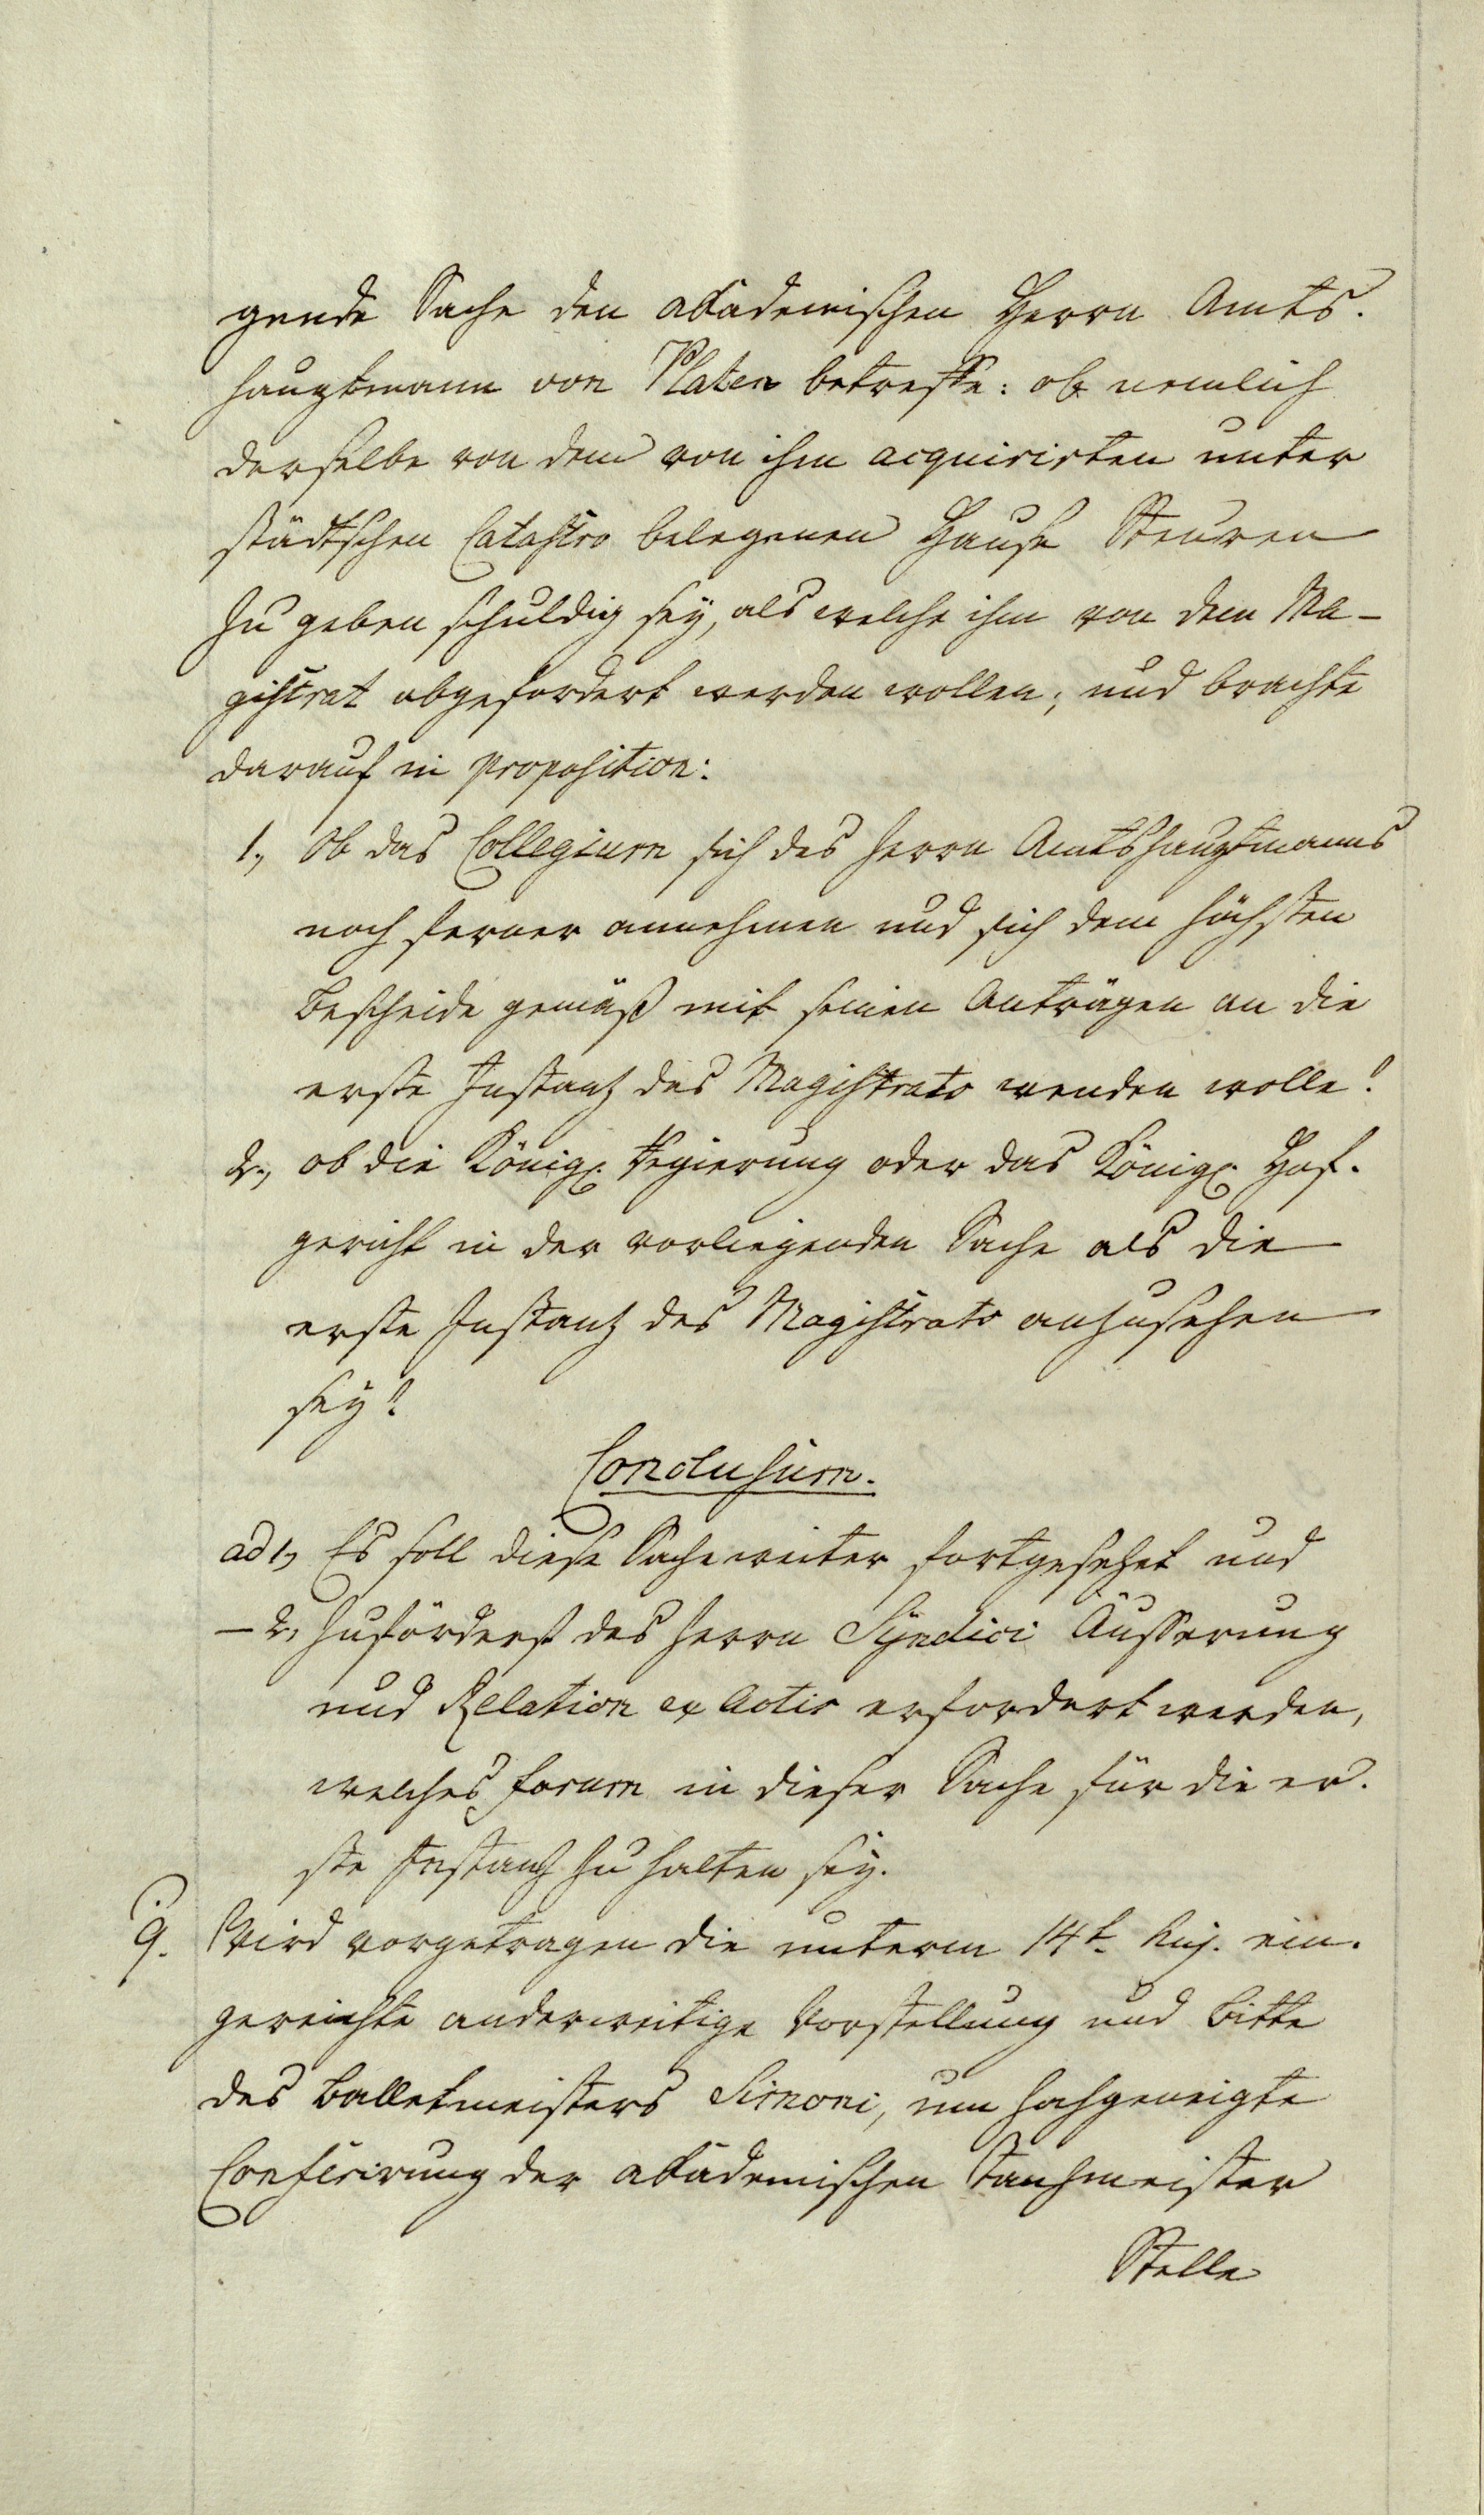 gende Sache den akademischen Herrn Amts-
hauptmann von Platen betreffe: ob nemlich
derselbe von dem von ihm acquirirten unter
städtschen Catastro belegenen Hause Steuren
zu geben schuldig sey, als welche ihm von dem Ma-
gistrat abgefordert werden wollen; und brachte
darauf in proposition:
1., Ob das Collegium sich des Herrn Amtshauptmanns
noch ferner annehmen und sich dem höchsten
Bescheide gemäß mit seinen Anträgen an die
erste Instantz des Magistrats wenden wolle?
2., ob die Königl. Regierung oder das Königl. Hof-
gericht in der vorliegenden Sache als die
erste Instantz des Magistrats anzusehen
sey?
Conclusum.
ad 1., Es soll diese Sache weiter fortgesetzet und
— 2, zuförderst des Herrn Syndici Äusserung
und Relation ex Actis erfordert werden,
welches forum in dieser Sache für die er-
ste Instantz zu halten sey.
9. Wird vorgetragen die unterm 14t. huj. ein-
gereichte anderweitige Vorstellung und Bitte
des Balletmeisters Simoni, um hochgeneigte
Conferirung der akademischen Tanzmeister
Stelle